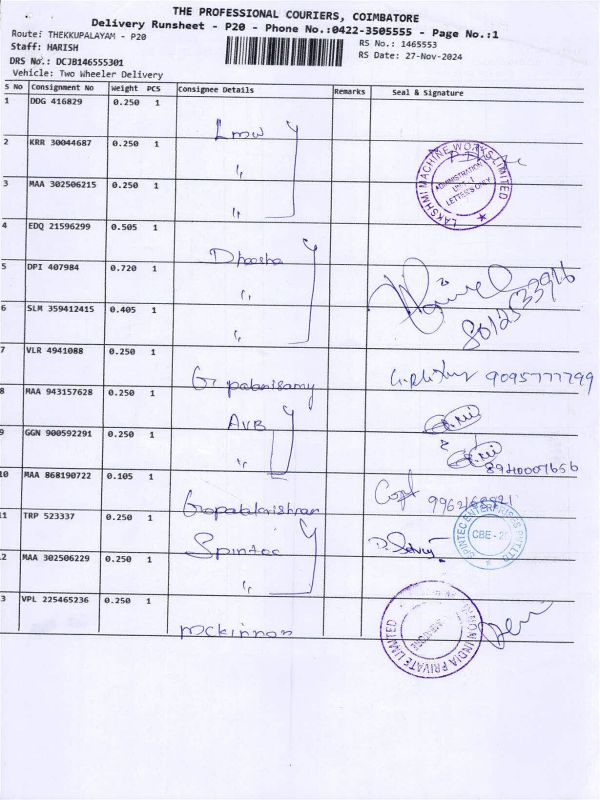 THE PROFESSIONAL COURIERS, COIMBATORE
Delivery Runsheet - P20 - Phone No.:0422-3505555 - Page No.:1
Route: THEKKUPALAYAM - P20
RS No.: 1465553
Staff: HARISH
RS Date: 27-Nov-2024
DRS No.: DCJB146555301
Vehicle: Two Wheeler Delivery
S No Consignment No Weight PCS Consignee Details Remarks Seal & Signature
1 DDG 416829 0.250 1
Lmw
2 KRR 30044687 0.250 1
"
LAKSHMI MACHINE WORKS LIMITED
ADMINISTRATION
LETTERS ONLY
3 MAA 302506215 0.250 1
"
4 EDQ 21596299 0.505 1
5 DPI 407984 0.720 1
"
8012533916
6 SLM 359412415 0.405 1
"
7 VLR 4941088 0.250 1
G. palanisamy
9095777799
8 MAA 943157628 0.250 1
AVB
9 GGN 900592291 0.250 1
"
8940007656
10 MAA 868190722 0.105 1
Gopalakrishnan
11 TRP 523337 0.250 1
Spintec
SPINTEC ENTERPRISES PVT LTD
CBE - 20
12 MAA 302506229 0.250 1
"
13 VPL 225465236 0.250 1
Mckinnon
INDIA PRIVATE LIMITED